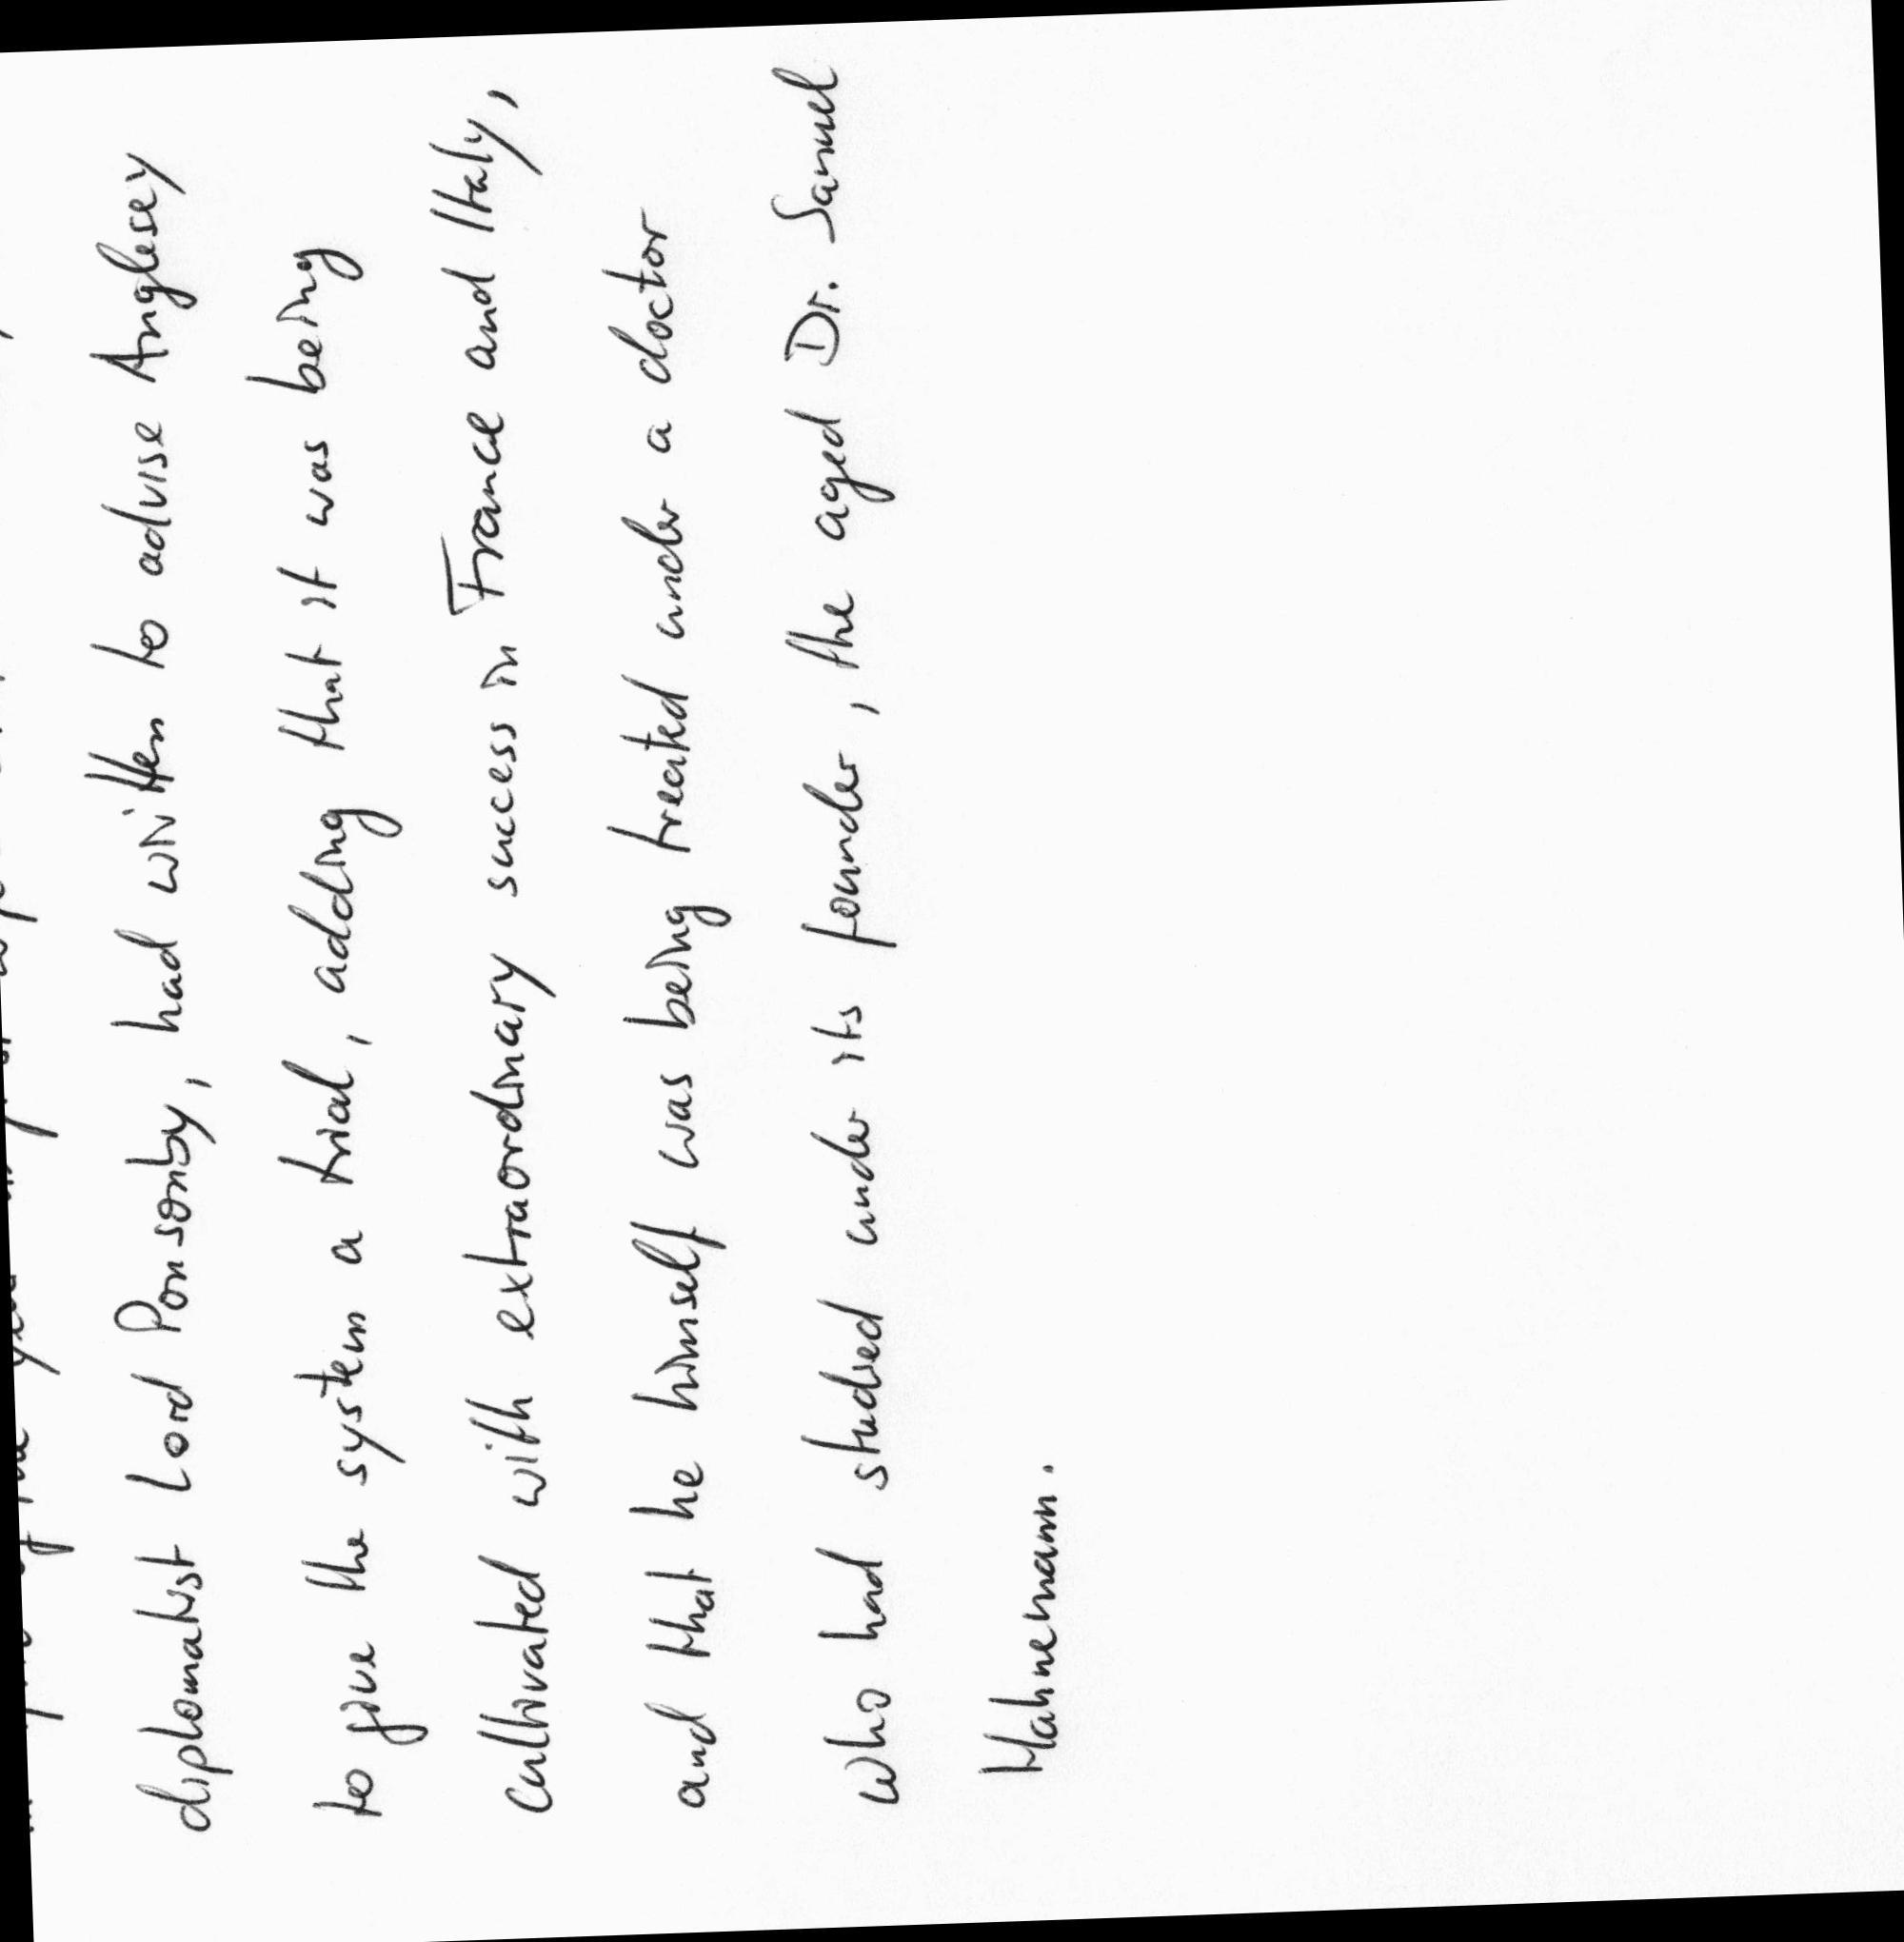 diplomatist Lord Ponsonby, had written to advise Anglesey
to give the system a trial, adding that it was being
cultivated with extraordinary success in France and Italy,
and that he himself was being treated under a doctor
who had studied under its founder, the aged Dr. Samuel
Hahnemann.